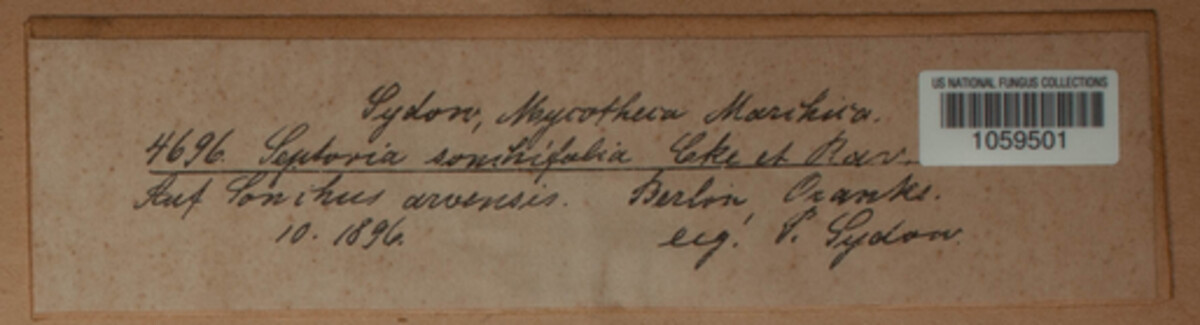 Sydow, Mycotheca Marchica.
US NATIONAL FUNGUS COLLECTIONS
1059501
4696. Septoria sonchifolia Cke et Rav.
Auf Sonchus arvensis. Berlin, Oranke.
10. 1896. leg. P. Sydow